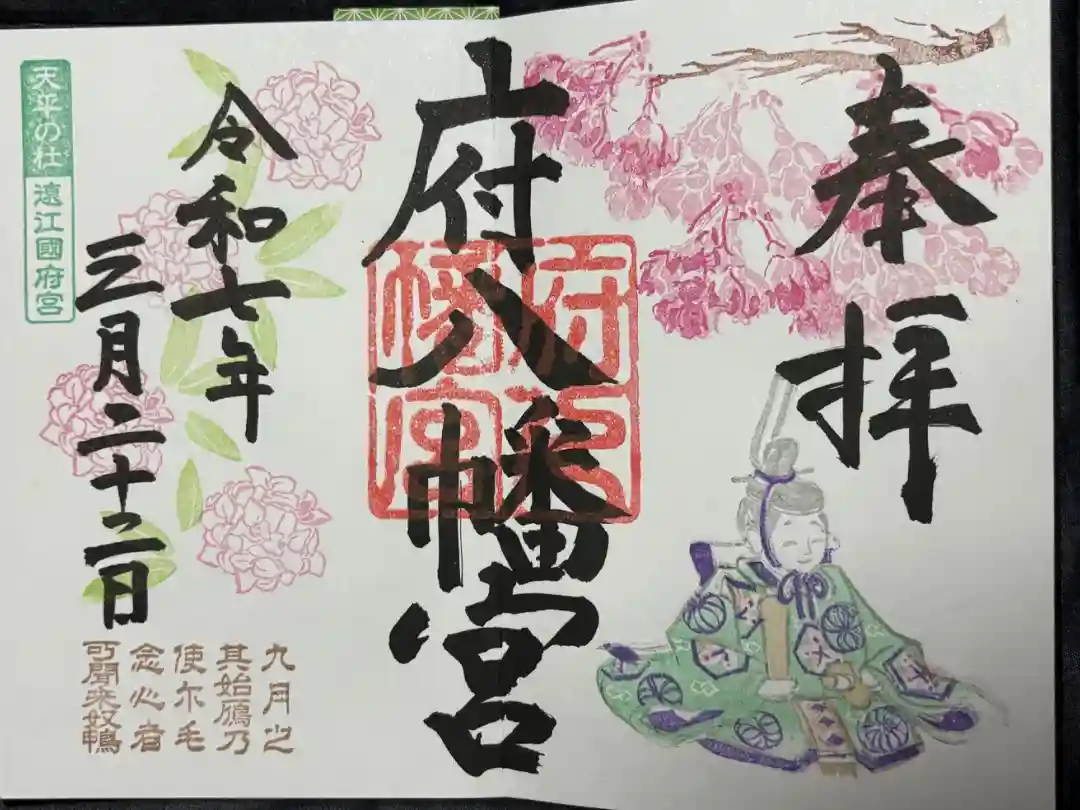 奉拝
府八幡宮
府八
幡宮
令和七年
三月二十二日
天平の杜
遠江國府宮
九月之
其始鴈乃
使尓毛
念心者
可聞来奴鴨